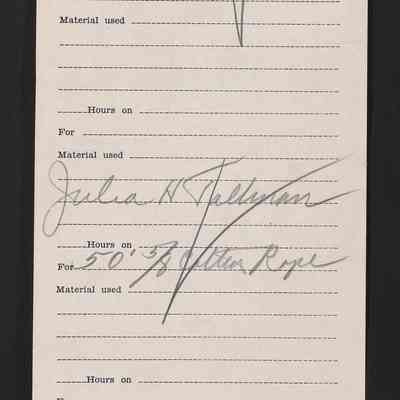 Material used
Hours on
For
Material used
Julia H Tallman
Hours on
For 50' 5/8 Cotton Rope
Material used
Hours on